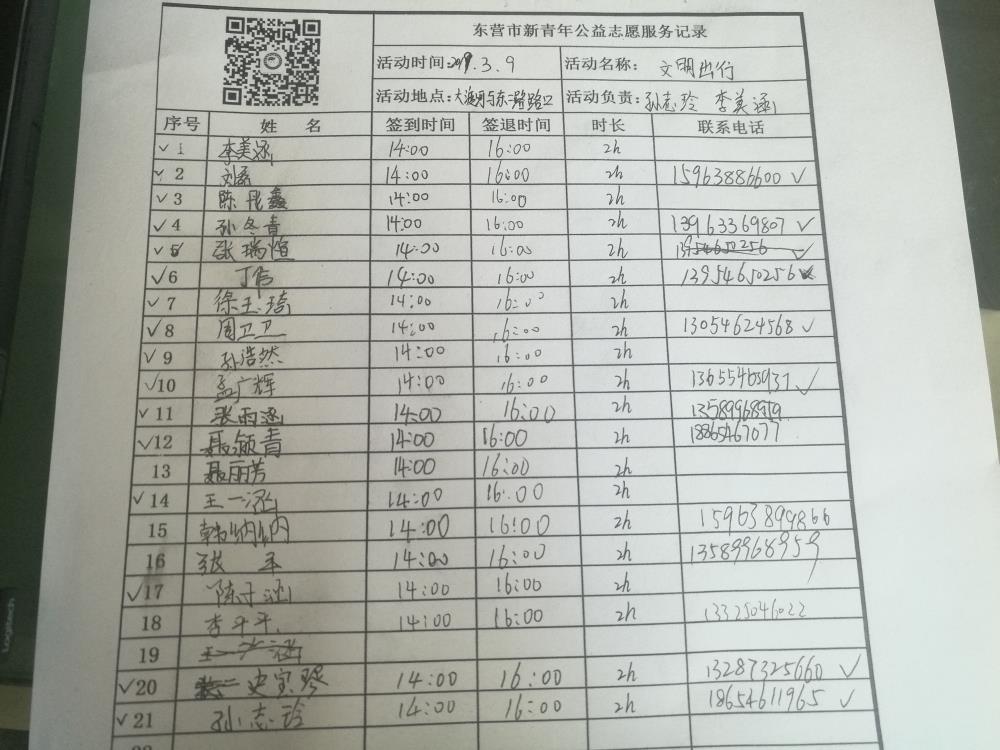 东营市新青年公益志愿服务记录
活动时间:2019.3.9 活动名称: 文明出行
活动地点: 活动负责:孙志玲 李美涵
序号 姓 名 签到时间 签退时间 时长 联系电话
✓ 1 李美涵 14:00 16:00 2h
✓ 2 刘磊 14:00 16:00 2h 15963886600 ✓
✓ 3 陈 鑫 14:00 16:00 2h
✓ 4 孙冬青 14:00 16:00 2h 13963369807 ✓
✓ 5 张瑞恒 14:00 16:00 2h ✓
✓ 6 丁 14:00 16:00 2h 13954650256
✓ 7 徐玉琦 14:00 16:00 2h
✓ 8 周卫卫 14:00 16:00 2h 13054624568 ✓
✓ 9 孙浩然 14:00 16:00 2h
✓ 10 孟广辉 14:00 16:00 2h ✓
✓ 11 张雨涵 14:00 16:00 2h 13589968959
✓ 12 聂颖青 14:00 16:00 2h 18865467077
13 聂丽芳 14:00 16:00 2h
✓ 14 王一涵 14:00 16:00 2h
15 韩纳纳 14:00 16:00 2h 15963899866
16 张 14:00 16:00 2h 13589968959
✓ 17 陈子涵 14:00 16:00 2h
18 李平平 14:00 16:00 2h 13325046022
19 王一涵
✓ 20 史宝琴 14:00 16:00 2h 13287325660 ✓
✓ 21 孙志玲 14:00 16:00 2h 18654611965 ✓
Logitech